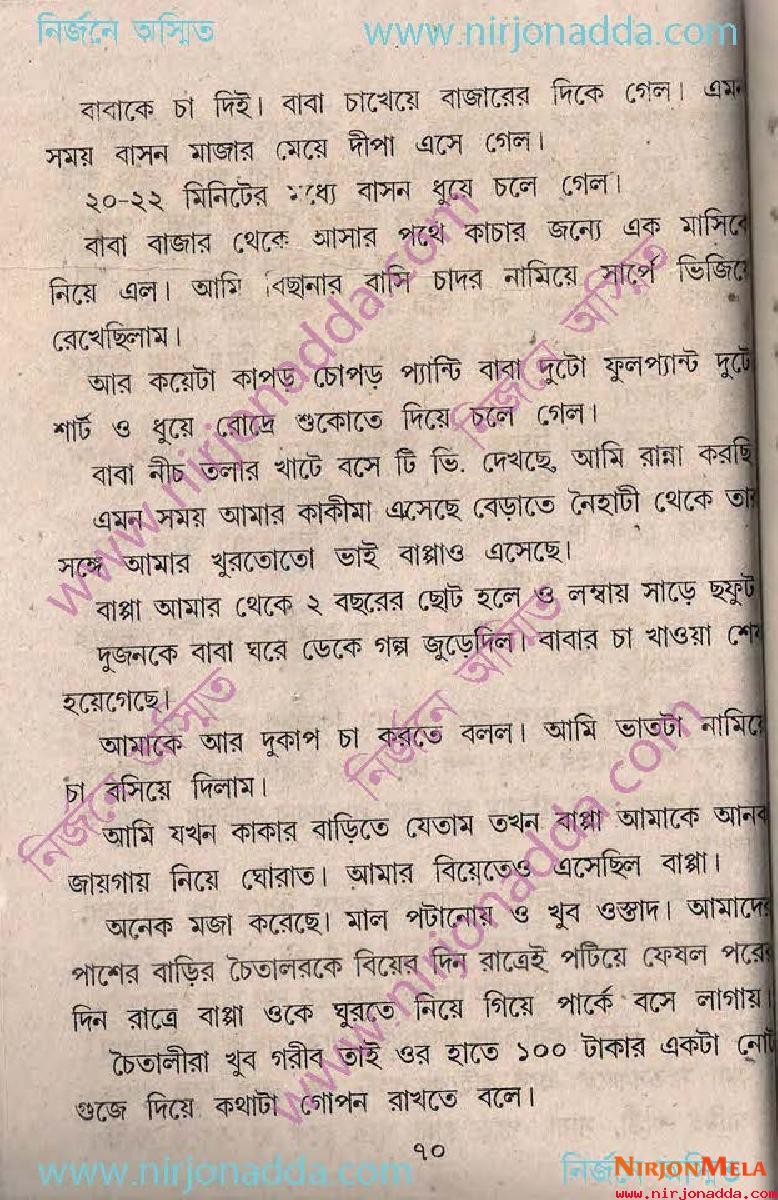 নির্জনে অস্মিত www.nirjonadda.com
বাবাকে চা দিই। বাবা চাখেয়ে বাজারের দিকে গেল। এমন
সময় বাসন মাজার মেয়ে দীপা এসে গেল।
২০-২২ মিনিটের মধ্যে বাসন ধুয়ে চলে গেল।
বাবা বাজার থেকে আসার পথে কাচার জন্যে এক মাসিকে
নিয়ে এল। আমি বিছানার বাসি চাদর নামিয়ে সার্পে ভিজিয়ে
রেখেছিলাম।
আর কয়েটা কাপড় চোপড় প্যান্টি বাবা দুটো ফুলপ্যান্ট দুটো
শার্ট ও ধুয়ে রোদ্রে শুকোতে দিয়ে চলে গেল।
বাবা নীচ তলার খাটে বসে টি ভি. দেখছে, আমি রান্না করছি
এমন সময় আমার কাকীমা এসেছে বেড়াতে নৈহাটী থেকে তার
সঙ্গে আমার খুরতোতো ভাই বাপ্পাও এসেছে।
বাপ্পা আমার থেকে ২ বছরের ছোট হলে ও লম্বায় সাড়ে ছফুট
দুজনকে বাবা ঘরে ডেকে গল্প জুড়েদিল। বাবার চা খাওয়া শেষ
হয়েগেছে।
আমাকে আর দুকাপ চা করতে বলল। আমি ভাতটা নামিয়ে
চা বসিয়ে দিলাম।
আমি যখন কাকার বাড়িতে যেতাম তখন বাপ্পা আমাকে আনক
জায়গায় নিয়ে ঘোরাত। আমার বিয়েতেও এসেছিল বাপ্পা।
অনেক মজা করেছে। মাল পটানোয় ও খুব ওস্তাদ। আমাদের
পাশের বাড়ির চৈতালরকে বিয়ের দিন রাত্রেই পটিয়ে ফেষল পরের
দিন রাত্রে বাপ্পা ওকে ঘুরতে নিয়ে গিয়ে পার্কে বসে লাগায়।
চৈতালীরা খুব গরীব তাই ওর হাতে ১০০ টাকার একটা নোট
গুজে দিয়ে কথাটা গোপন রাখতে বলে।
৭০
www.nirjonadda.com নির্জনে অস্মিত
NIRJONMELA
www.nirjonadda.com
www.nirjonadda.com
নির্জনে অস্মিত
নির্জনে অস্মিত
নির্জনে অস্মিত
www.nirjonadda.com